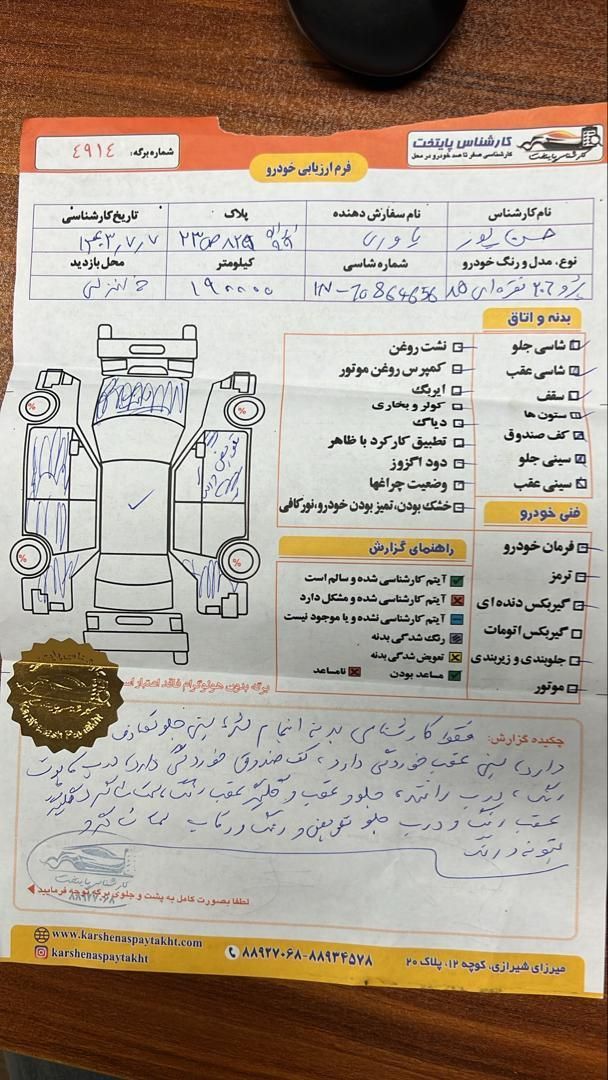 شماره برگه: ٤٩١٤
کارشناس پایتخت
کارشناسی صفر تا صد خودرو در محل
کارشناس پایتخت
فرم ارزیابی خودرو
نام کارشناس
نام سفارش دهنده
پلاک
تاریخ کارشناسی
حسن پور
یاوری
۱۴۰۳,۷,۷
نوع، مدل و رنگ خودرو
شماره شاسی
کیلومتر
محل بازدید
پژو ۲۰۶ نقره ای ۸۵
IN-70864656
۱۹۰۰۰۰
بدنه و اتاق
شاسی جلو
شاسی عقب
سقف
ستون ها
کف صندوق
سینی جلو
سینی عقب
فنی خودرو
فرمان خودرو
ترمز
گیربکس دنده ای
گیربکس اتومات
جلوبندی و زیربندی
موتور
نشت روغن
کمپرس روغن موتور
ایربگ
کولر و بخاری
دیاگ
تطبیق کارکرد با ظاهر
دود اگزوز
وضعیت چراغها
خشک بودن، تمیز بودن خودرو، نور کافی
راهنمای گزارش
آیتم کارشناسی شده و سالم است
آیتم کارشناسی شده و مشکل دارد
آیتم کارشناسی نشده و یا موجود نیست
رنگ شدگی بدنه
تعویض شدگی بدنه
مساعد بودن
نامساعد
%
%
%
%
برگه بدون هولوگرام فاقد اعتبار است
چکیده گزارش: فقط کارشناسی بدنه انجام شد، سینی جلو تصادف
دارد، سینی عقب خوردگی دارد، کف صندوق خوردگی دارد، درب کاپوت
رنگ، درب راننده، جلو و عقب و گلگیر عقب رنگ، سمت شاگرد گلگیر
عقب رنگ و درب جلو تعویض و رنگ و رکاب سمت شاگرد
بتونه و رنگ
کارشناس پایتخت
۸۸۹۲۷۰۶۸
لطفا بصورت کامل به پشت و جلوی برگه توجه فرمایید
www.karshenaspaytakht.com
karshenaspaytakht
۸۸۹۲۷۰۶۸-۸۸۹۳۴۵۷۸
میرزای شیرازی، کوچه ۱۲، پلاک ۲۰